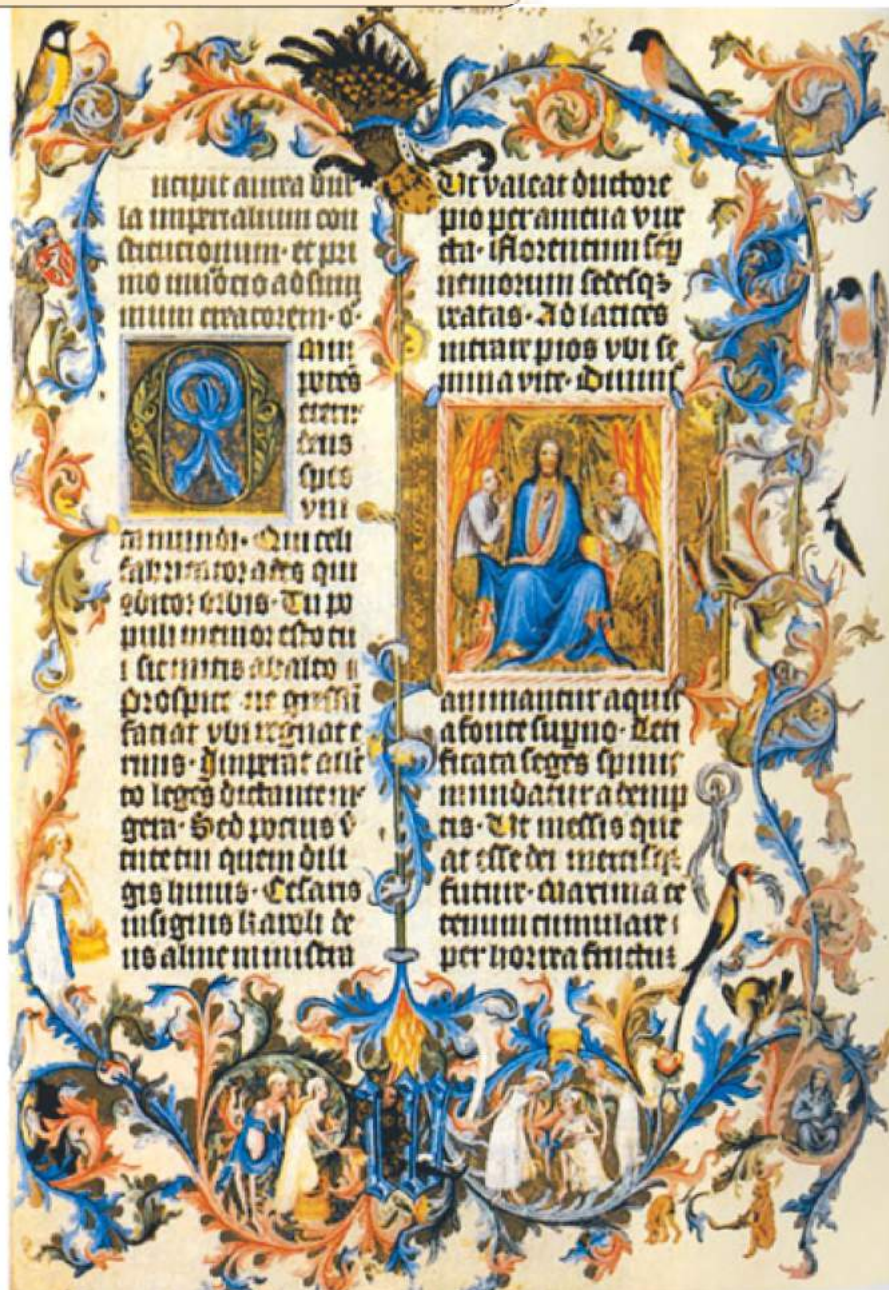 ncipit aurea bul
la imperialium con
stitucionum· et pri
mo inuocio ad sum
mum creatorem· o·
mni
potes
etern
deus
spes
vni
ca mundi· Qui celi
fabricator ades qui
ↄditor orbis· Tu po
puli memor esto tu
i sic mitis ab alto
Prospice ne gressũ
faciat vbi regnat e
rinis· Imperat alle
cto leges dictante me
gera· Sed pocius v
tute tui quem dili
gis huius· Cesaris
insignis karoli de
us alme ministra
Ut valeat ductore
pio per amena vir
cta· Florentum
nemorum sedesqꝫ
beatas· Ad latices
intrare pios vbi se
mina vite· Diuinis
animantur aquis
a fonte supno· Leti
ficata seges spinis
mundatur ademp
tis· Ut messis que
at esse dei
future· Maxima ce
tenum cumulare
per horrea fructus